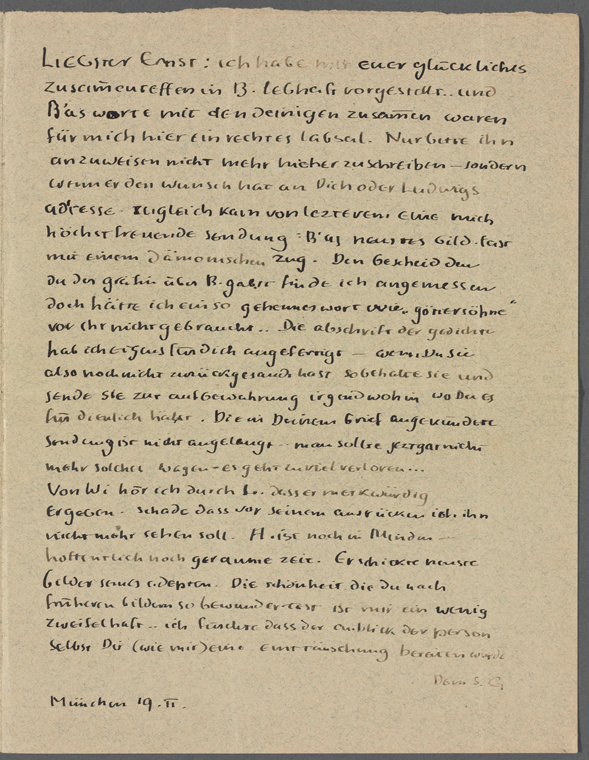 Liebster Ernst: ich habe mir euer glückliches
zusam̄entreffen in B. lebhaft vorgestellt.. und
B's worte mit den deinigen zusam̄en waren
für mich hier ein rechtes labsal. Nur bitte ihn
anzuweisen nicht mehr hieher zuschreiben – sondern
wenn er den wunsch hat an Dich oder Ludwigs
adresse. zugleich kam von lezterem eine mich
höchst freuende sendung: B's neustes bild. fast
mit einem dämonischen zug. Den bescheid den
du der gräfin über B. gabst finde ich angemessen
doch hätte ich ein so geheimes wort wie „göttersöhne"
vor ihr nicht gebraucht.. Die abschrift der gedichte
hab ich eigens für dich angefertigt – wenn Du sie
also noch nicht zurückgesandt hast so behalte sie und
sende sie zur aufbewahrung irgendwohin wo Du es
für dienlich hältst. Die in Deinem brief angekündete
sendung ist nicht angelangt.. man sollte jezt gar nicht
mehr solches wagen – es geht zu viel verloren...
Von Wi hör ich durch L. dass er merkwürdig
ergeben. schade dass vor seinem ausrücken ich ihn
nicht mehr sehen soll. H. ist noch in Minden –
hoffentlich noch geraume zeit. Er schickte neuste
bilder seines adepten. Die schönheit die du nach
früheren bildern so bewundertest ist mir ein wenig
zweifelhaft.. ich fürchte dass der anblick der person
selbst Dir (wie mir) eine enttäuschung bereiten würde
Dein S. G
München 19. II.